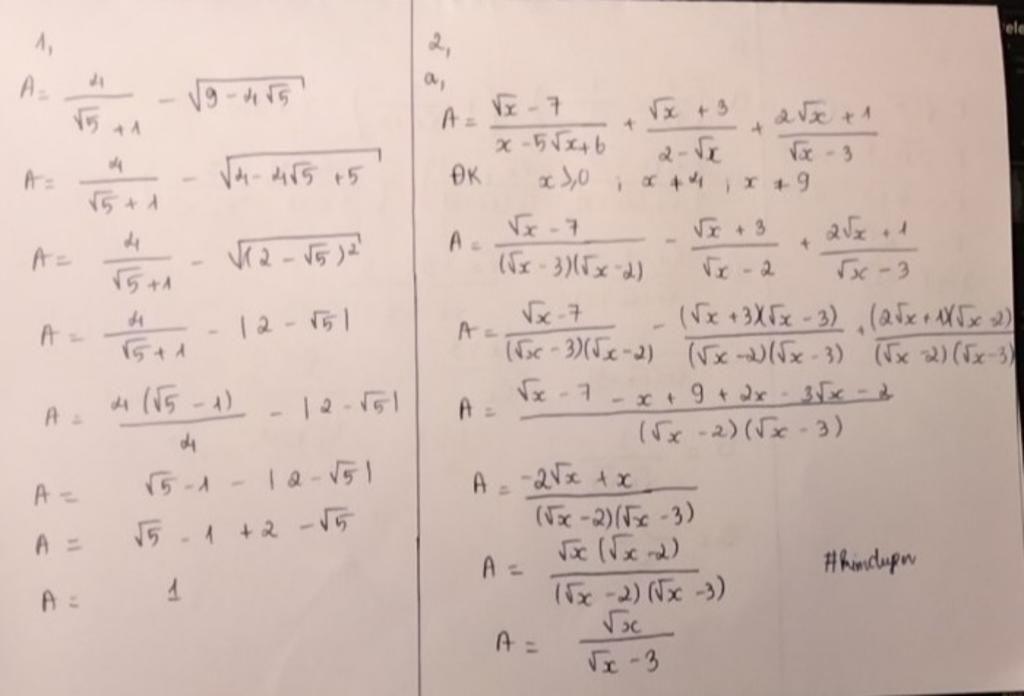 1,
A = 4/(√5 + 1) - √(9 - 4√5)
A = 4/(√5 + 1) - √(4 - 4√5 + 5)
A = 4/(√5 + 1) - √((2 - √5)²)
A = 4/(√5 + 1) - |2 - √5|
A = 4(√5 - 1)/4 - |2 - √5|
A = √5 - 1 - |2 - √5|
A = √5 - 1 + 2 - √5
A = 1
2,
a,
A = (√x - 7)/(x - 5√x + 6) + (√x + 3)/(2 - √x) + (2√x + 1)/(√x - 3)
ĐK x ≥ 0 ; x ≠ 4 ; x ≠ 9
A = (√x - 7)/((√x - 3)(√x - 2)) - (√x + 3)/(√x - 2) + (2√x + 1)/(√x - 3)
A = (√x - 7)/((√x - 3)(√x - 2)) - ((√x + 3)(√x - 3))/((√x - 2)(√x - 3)) + ((2√x + 1)(√x - 2))/((√x - 2)(√x - 3))
A = (√x - 7 - x + 9 + 2x - 3√x - 2)/((√x - 2)(√x - 3))
A = (-2√x + x)/((√x - 2)(√x - 3))
A = (√x(√x - 2))/((√x - 2)(√x - 3))
A = √x/(√x - 3)